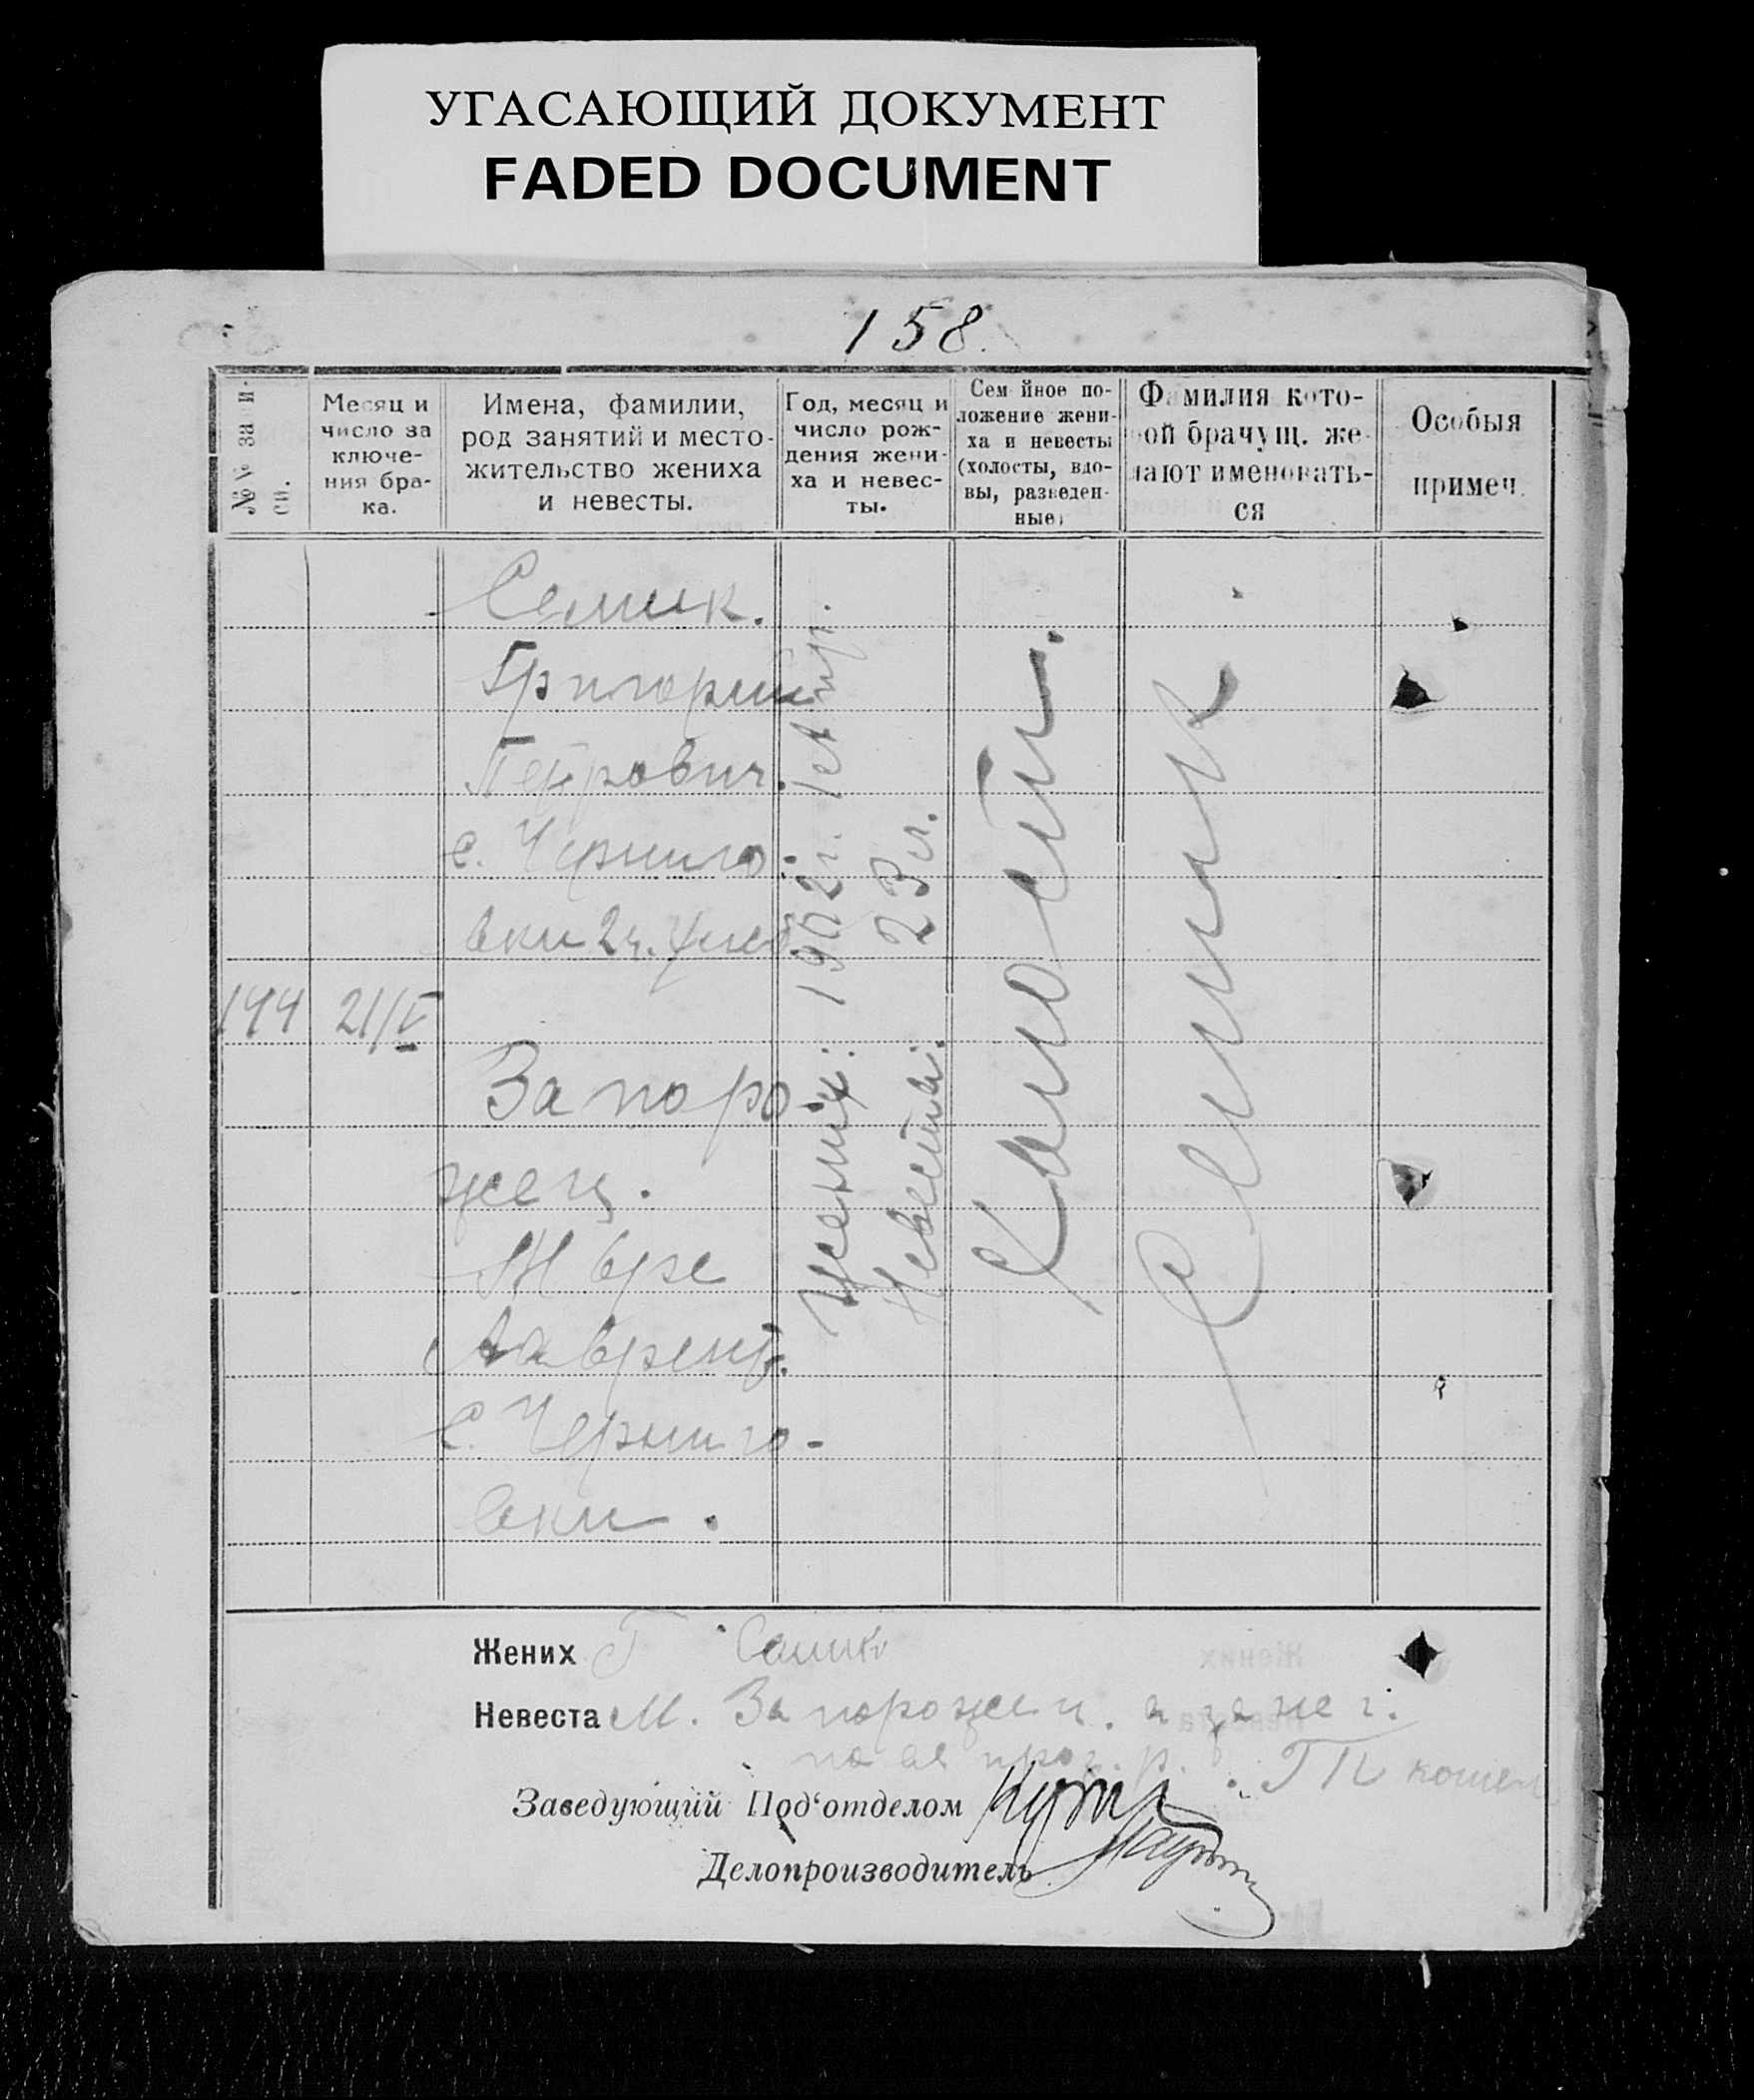 УГАСАЮЩИЙ ДОКУМЕНТ
FADED DOCUMENT
158.
№№ запи-
си.
Месяц и
число за
ключе-
ния бра-
ка.
Имена, фамилии,
род занятий и место-
жительство жениха
и невесты.
Год, месяц и
число рож-
дения жени-
ха и невес-
ты.
Семейное по-
ложение жени-
ха и невесты
(холосты, вдо-
вы, разведен-
ные)
Фамилия кото-
рой брачущ. же-
лают именовать-
ся
Особыя
примеч.
Семик.
Григорий
Петрович.
с. Черниго
вки 2 ч.
144 21/V
Запоро
жец.
Лаврент.
с. Черниго-
вки.
Жених: 1902 г.
Невеста: 23 л.
Холосты.
Семик.
Жених Г Семик
Невеста М. Запорожец. а за не г.
по ее
Заведующий Под'отделом
Делопроизводитель